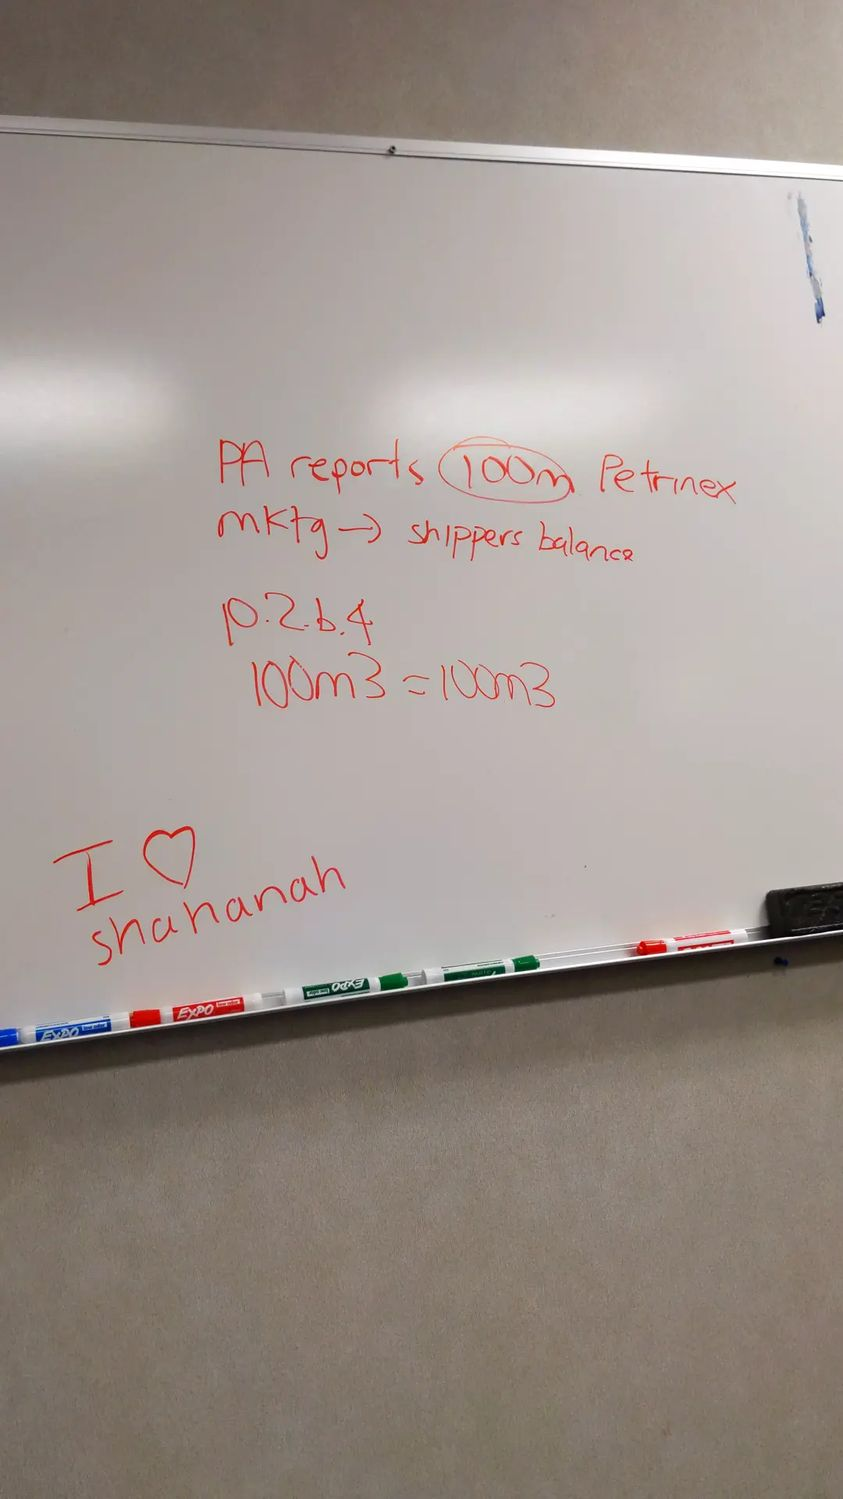 PA reports 100m Petrinex
mktg → shippers balance
p.2.b.4
100m3 = 100m3
I ♡
shahanah
EXPO
EXPO
EXPO